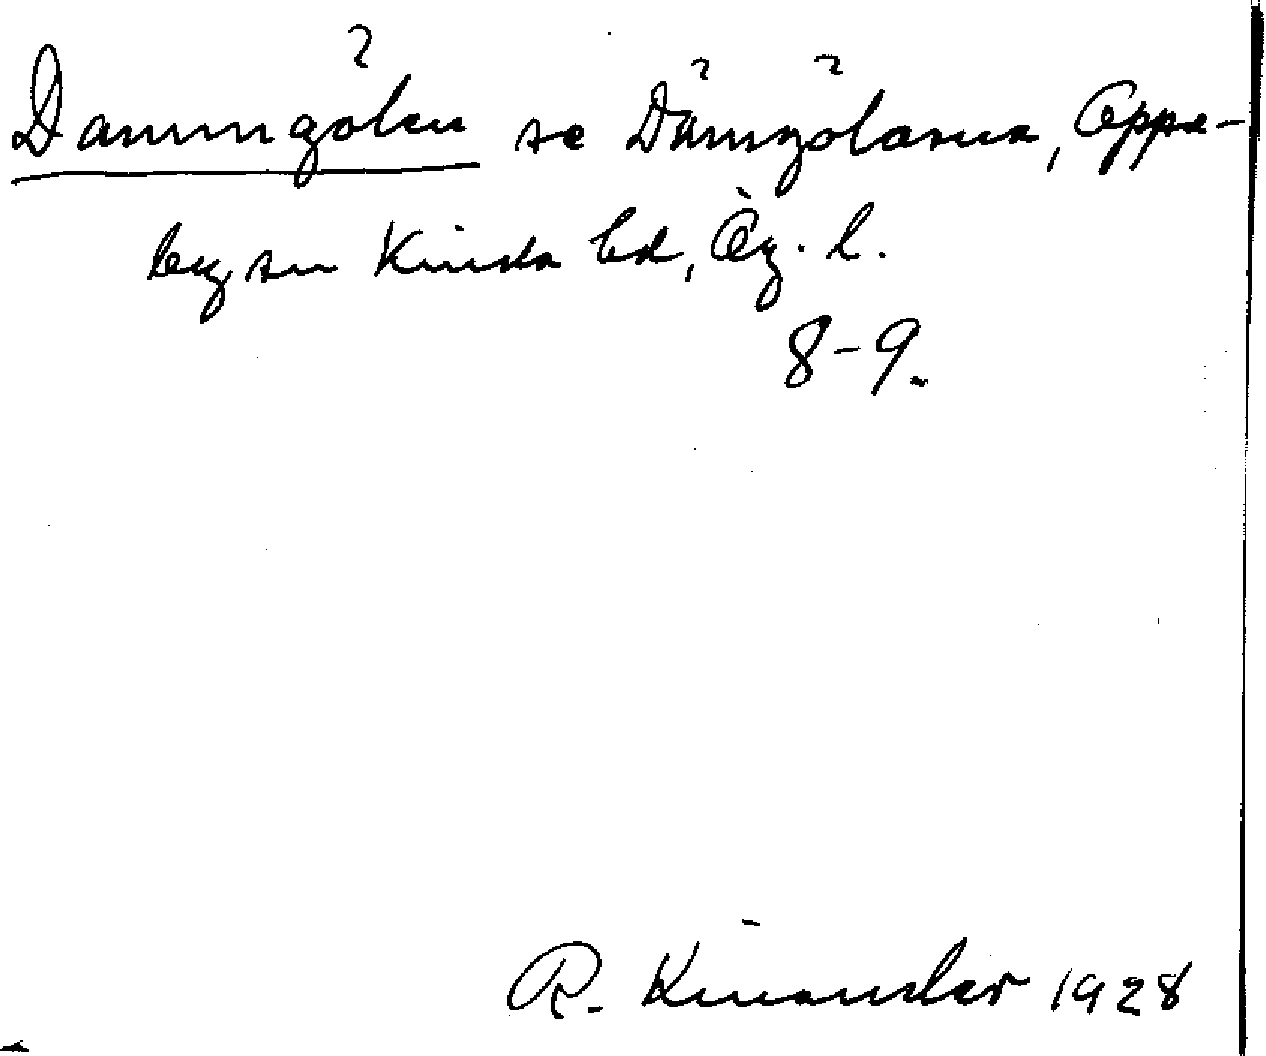 Dammgölen se Dämgölarna, Oppe-
by sn Kinda hd, Ög. l.
8-9.
R. Kinander 1928